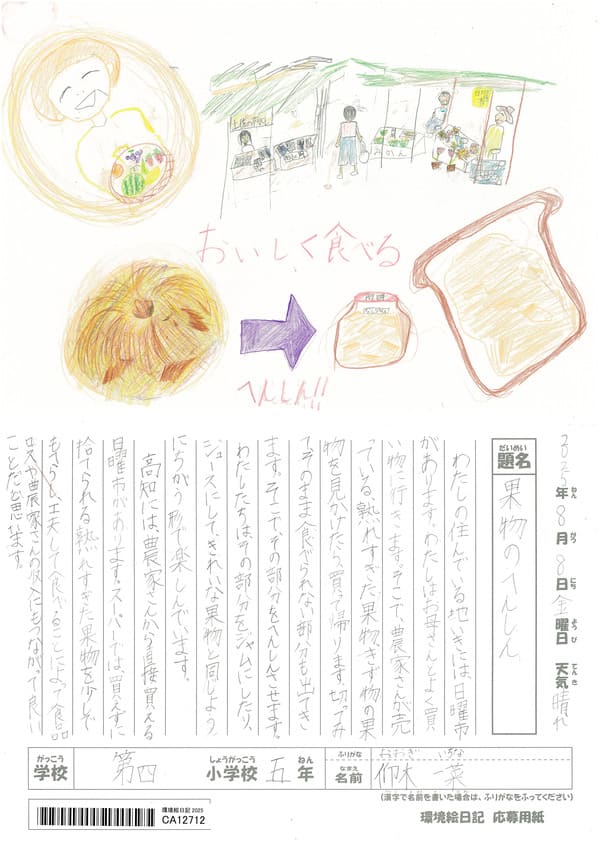 みかん
おいしく食べる
へんしん!!
2025年8月8日金曜日 天気 晴れ
ねん がつ にち ようび てんき
だいめい
題名 果物のへんしん
わたしの住んでいる地いきには、日曜市
があります。わたしはお母さんとよく買
い物に行きます。そこで、農家さんが売
っている、熟れすぎた果物、きず物の果
物を見かけたら買って帰ります。切ってみ
てそのまま食べられない部分も出てき
ます。そこで、その部分をへんしんさせます。
わたしたちは、その部分をジャムにしたり、
ジュースにして、きれいな果物と同じよう
にちがう形で楽しんでいます。
高知には、農家さんから直接買える
日曜市があります。スーパーでは、買えずに
捨てられる熟れすぎた果物を少しで
もへらし、工夫して食べることによって食品
ロスや農家さんの収入にもつながって良い
ことだと思います。
がっこう しょうがっこう ねん ふりがな おおぎ いちな
学校 第四 小学校 五年 なまえ 名前 仰木 一菜
(漢字で名前を書いた場合は、ふりがなをふってください)
環境絵日記 2025
CA12712
環境絵日記 応募用紙